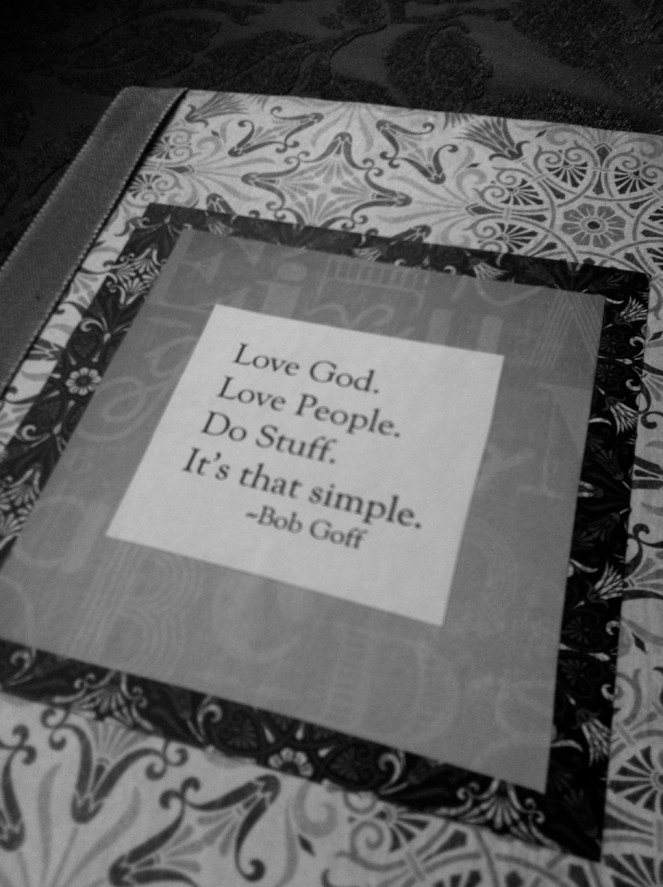 Love God.
Love People.
Do Stuff.
It's that simple.
~Bob Goff